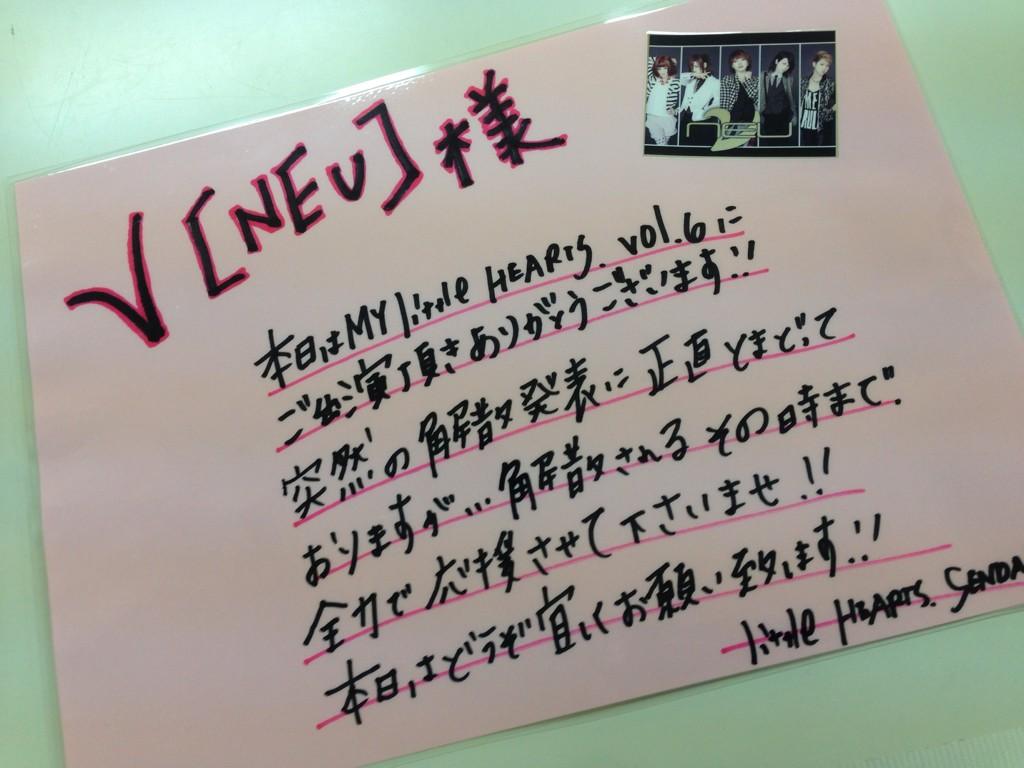 V[NEU]様
本日はMY little HEARTS. vol.6に
ご出演頂きありがとうございます!!
突然の解散発表に正直とまどって
おりますが...解散されるその時まで.
全力で応援させて下さいませ!!
本日はどうぞ宜しくお願い致します!!
little HEARTS. SENDA